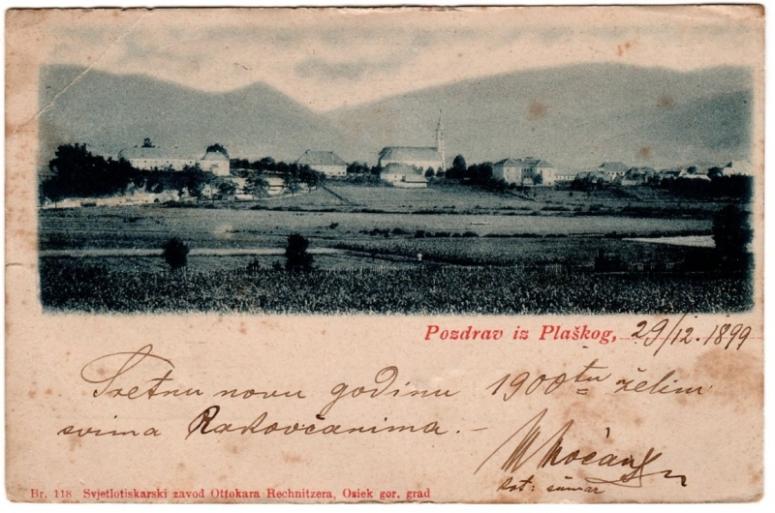 Pozdrav iz Plaškog, 29/12. 1899
Sretnu novu godinu 1900tu želim
svima Rakovčanima. –
Br. 118 Svjetlotiskarski zavod Ottokara Rechnitzera, Osiek gor. grad